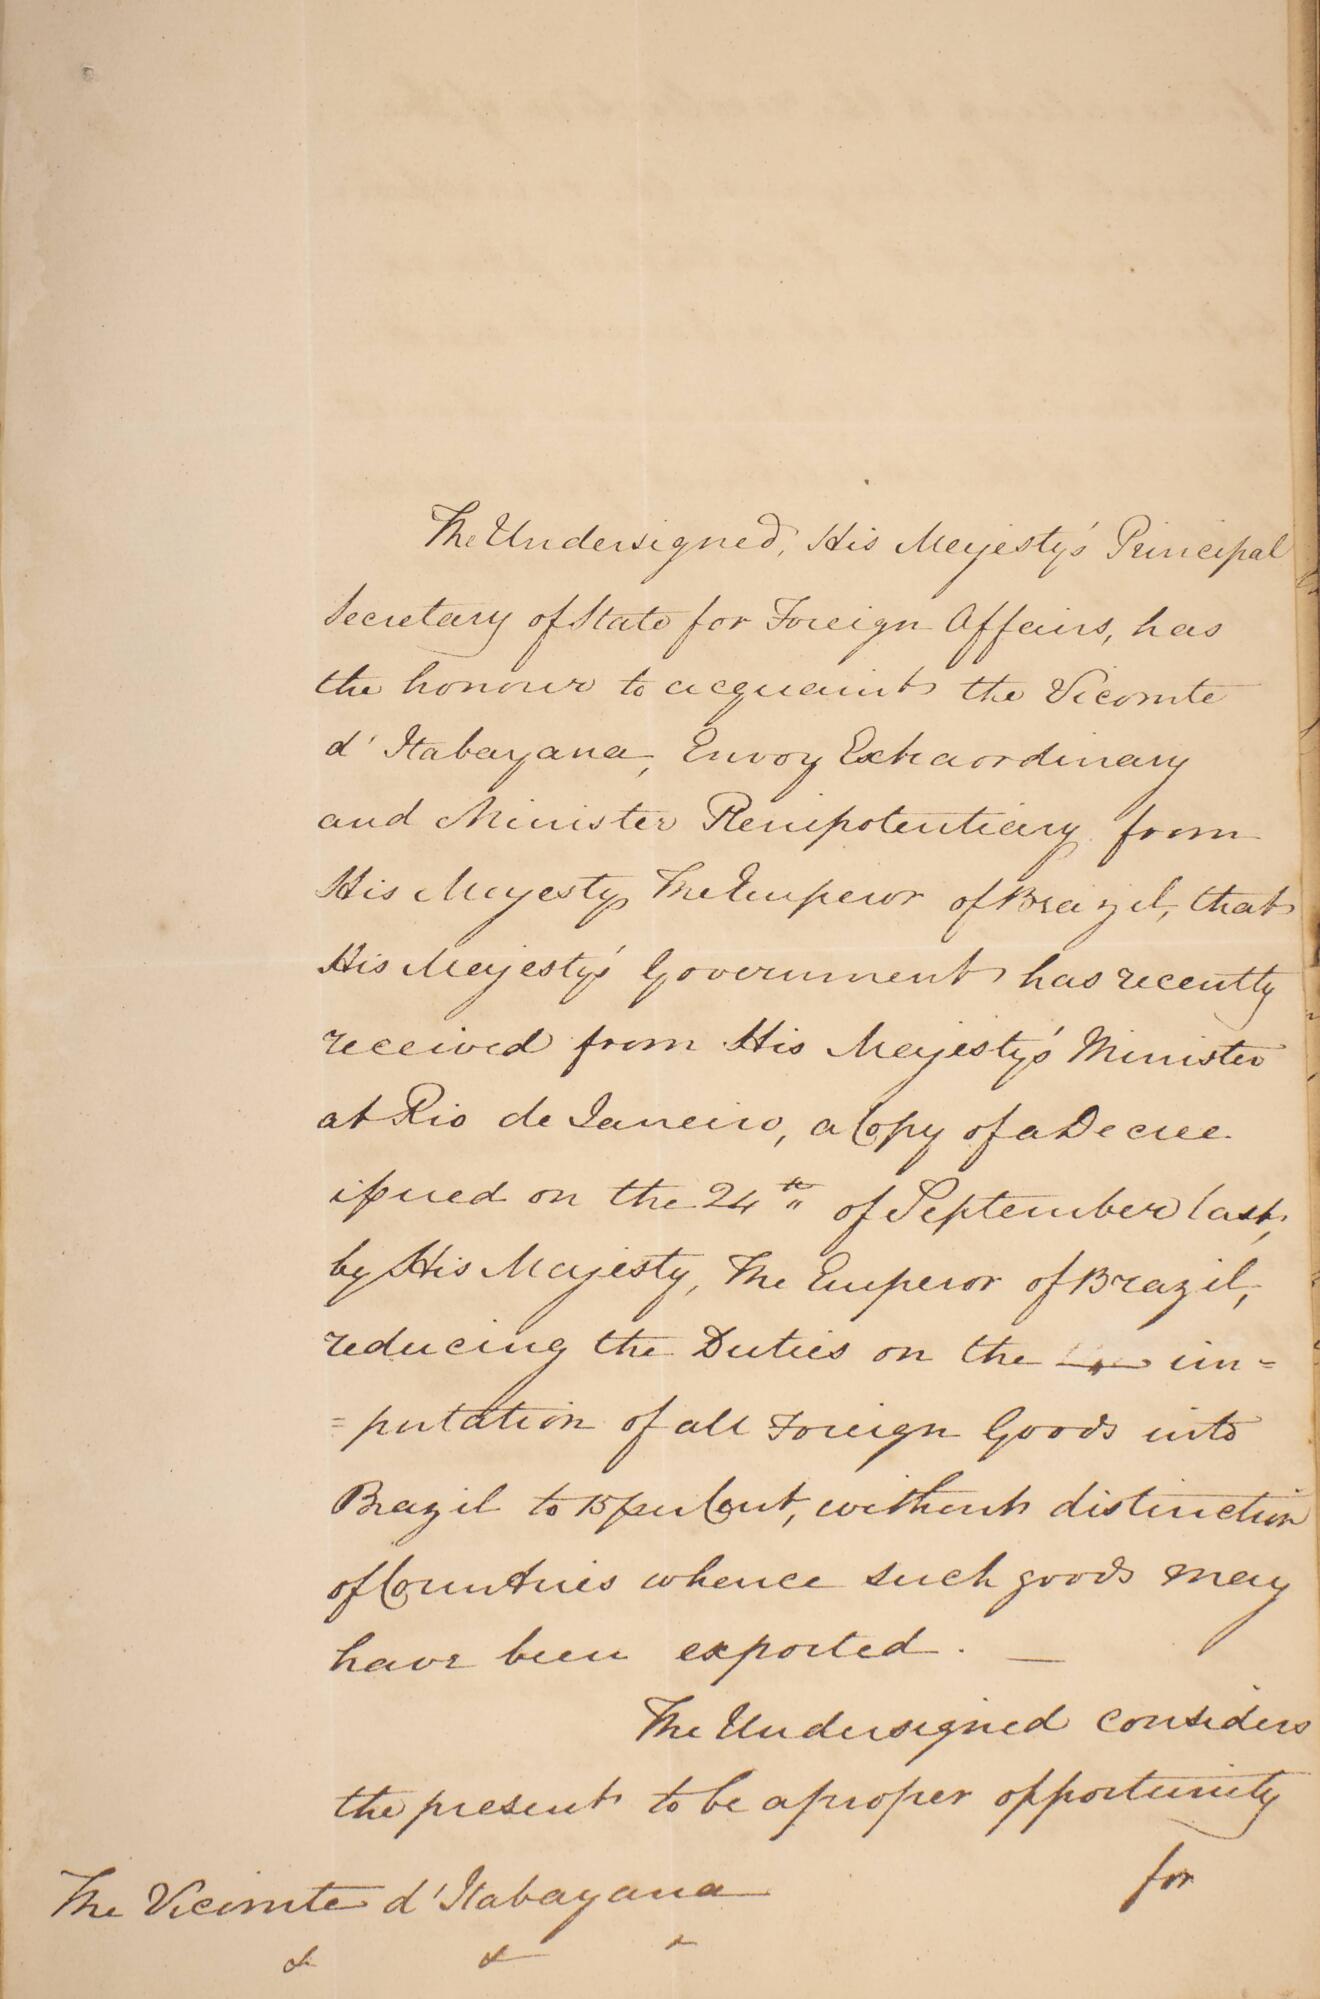 The Undersigned, His Majesty's Principal
Secretary of State for Foreign Affairs, has
the honour to acquaint the Vicomte
d'Itabayana, Envoy Extraordinary
and Minister Plenipotentiary from
His Majesty The Emperor of Brazil, that
His Majesty's Government has recently
received from His Majesty's Minister
at Rio de Janeiro, a Copy of a Decree
issued on the 24th of September last,
by His Majesty, The Emperor of Brazil,
reducing the Duties on the im=
=portation of all Foreign Goods into
Brazil to 15 per Cent, without distinction
of Countries whence such goods may
have been exported. —
The Undersigned considers
the present to be a proper opportunity
for
The Vicomte d'Itabayana
& &